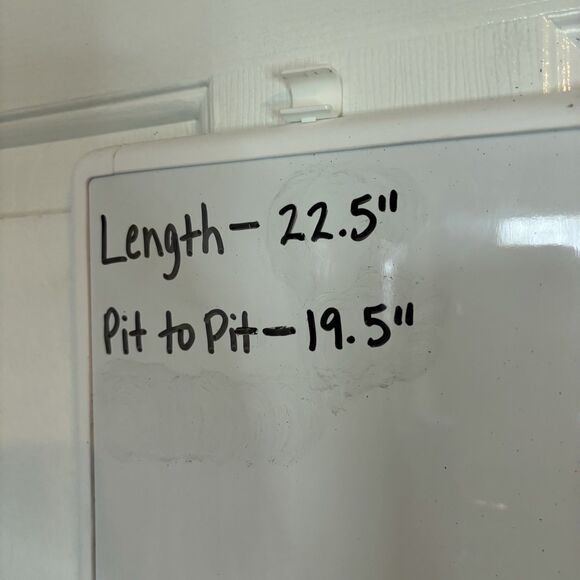 Length - 22.5"
Pit to Pit - 19.5"